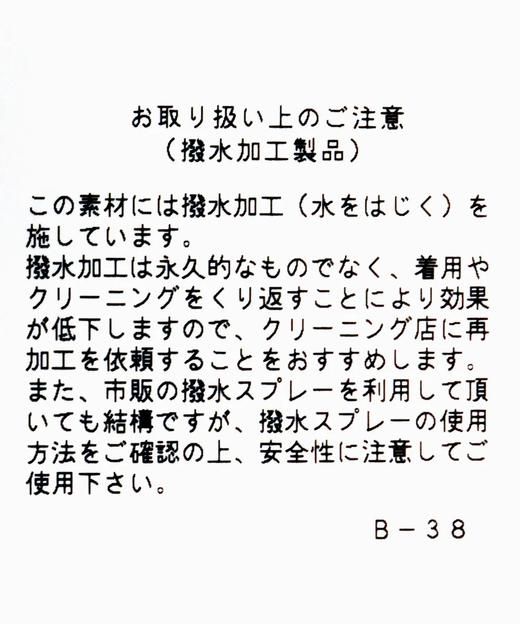 お取り扱い上のご注意
（撥水加工製品）
この素材には撥水加工（水をはじく）を
施しています。
撥水加工は永久的なものでなく、着用や
クリーニングをくり返すことにより効果
が低下しますので、クリーニング店に再
加工を依頼することをおすすめします。
また、市販の撥水スプレーを利用して頂
いても結構ですが、撥水スプレーの使用
方法をご確認の上、安全性に注意してご
使用下さい。
B－38